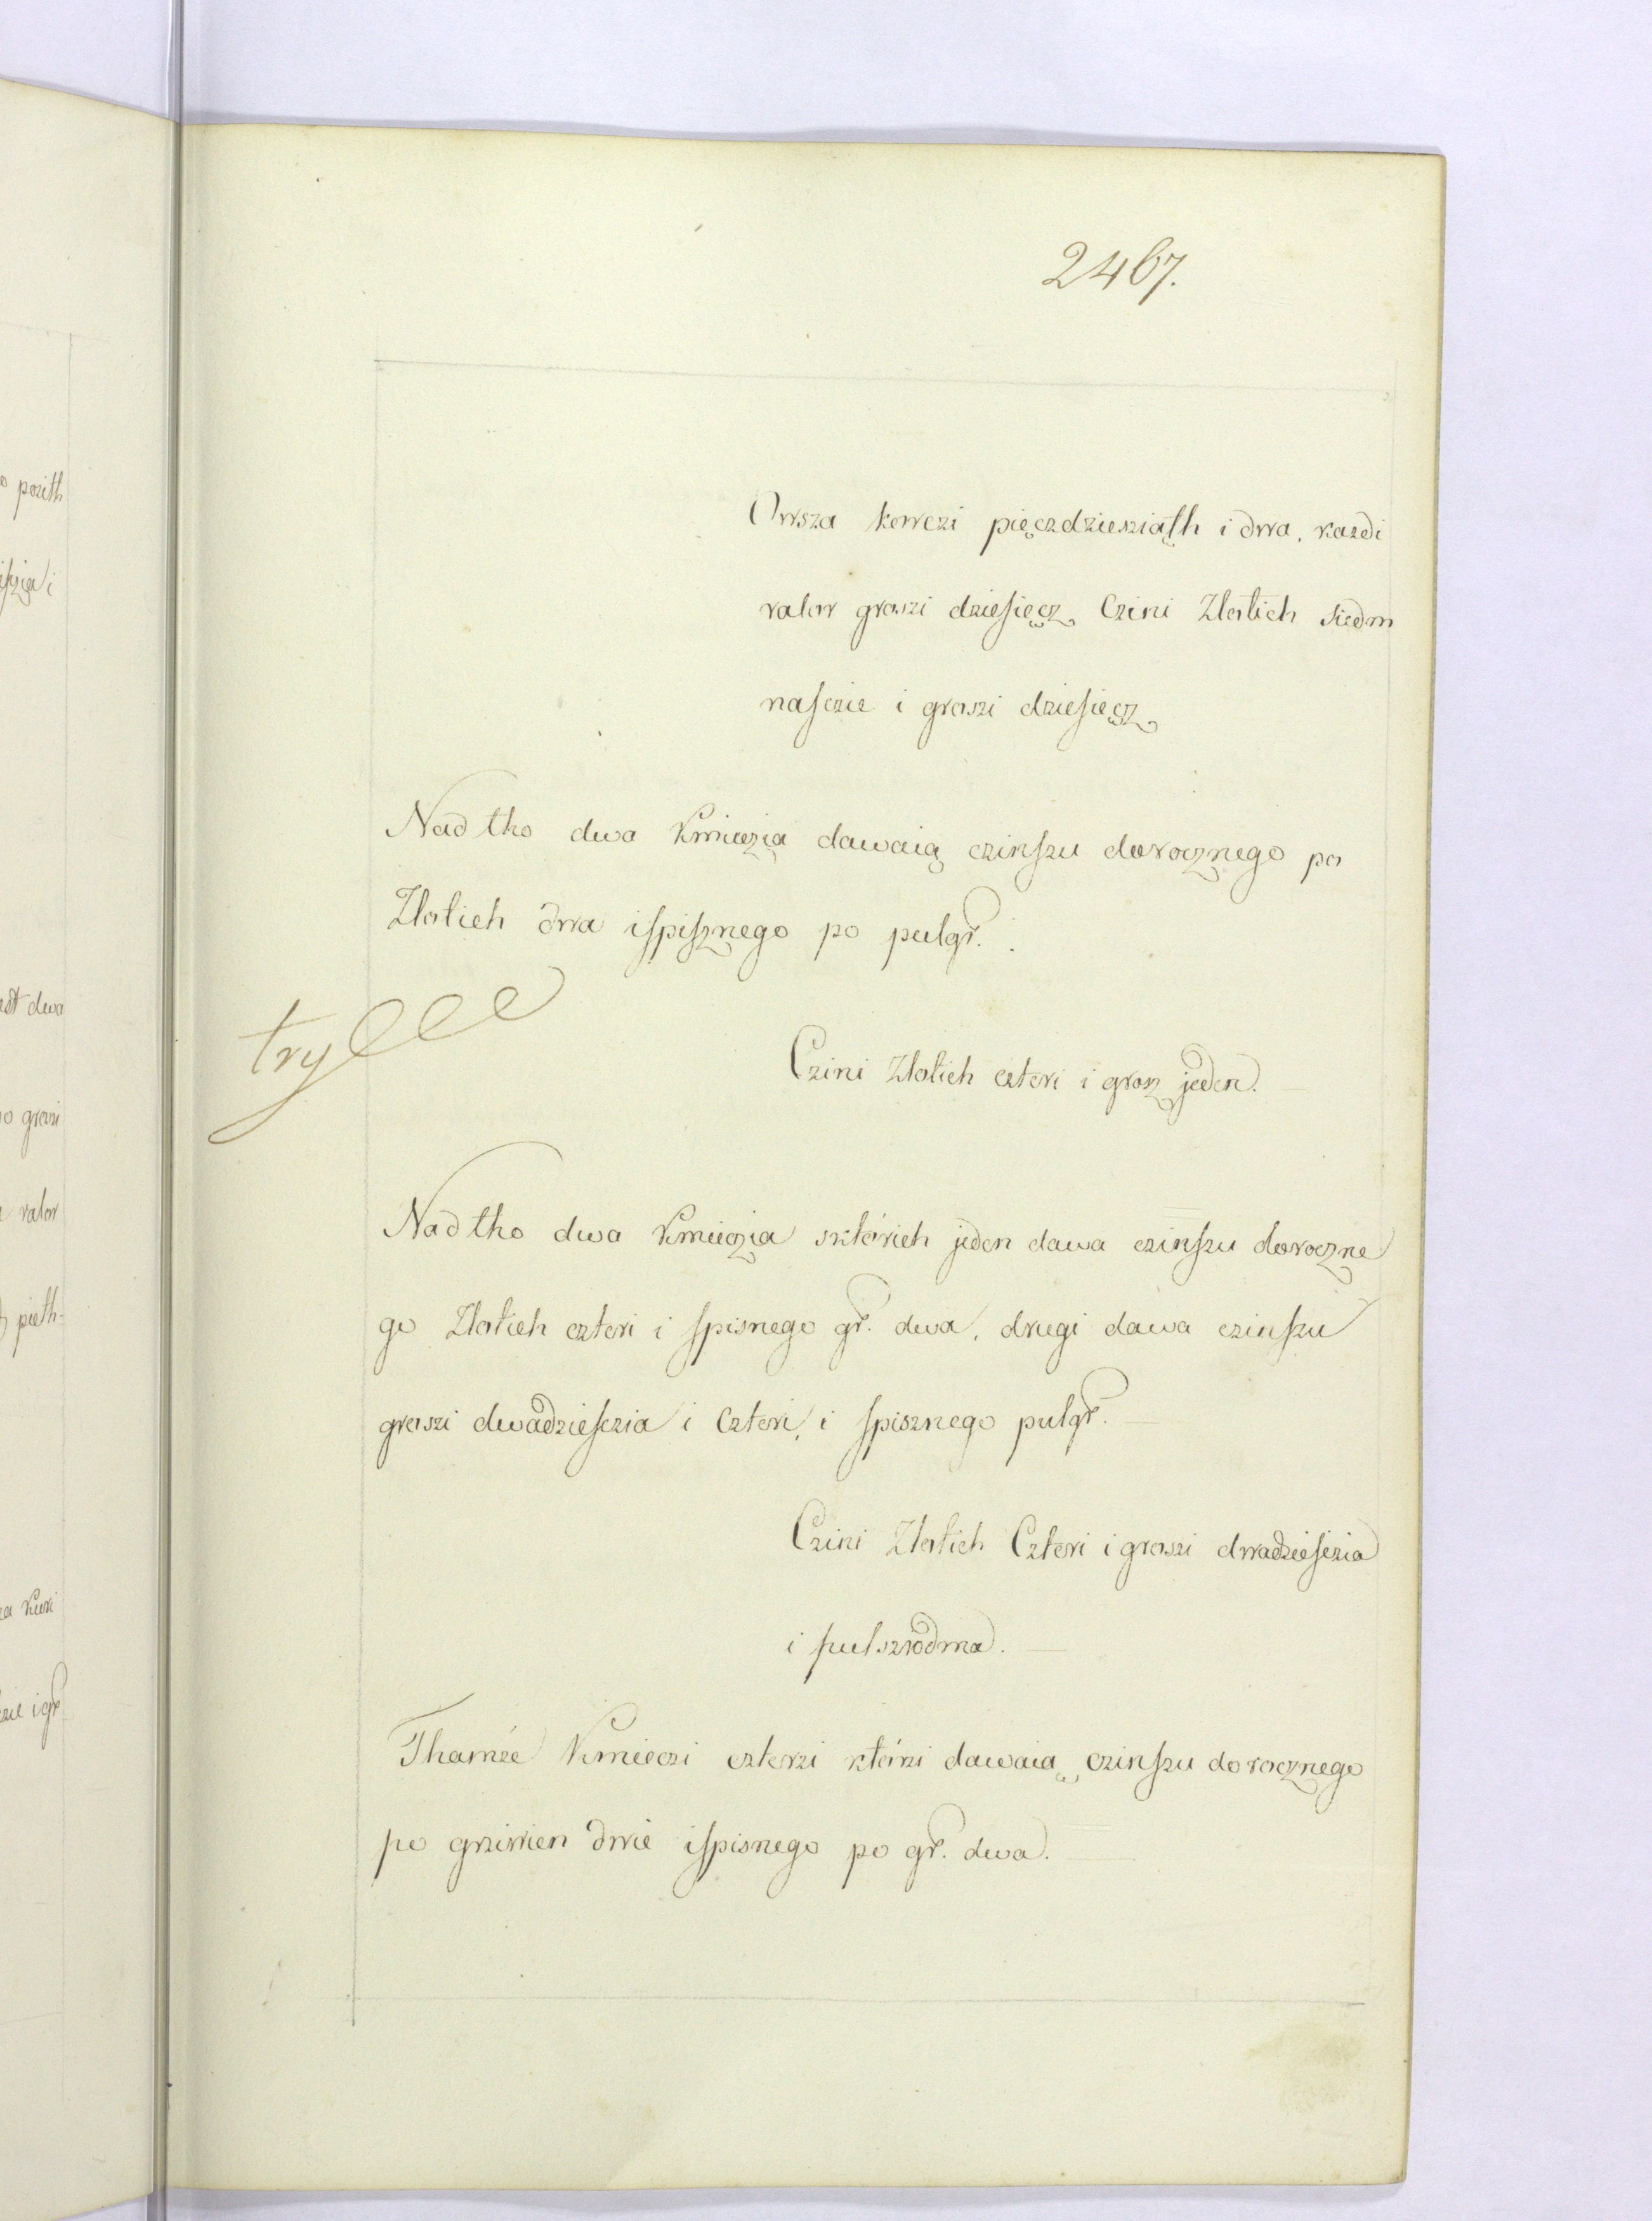 2467.
Owsza korczi pięczdziesiąth i dwa, każdi
valor groszi dziesięcz, Czini Złotich siedm
nasczie i groszi dziesięcz
o pozith
Nad tho dwa Kmiczia dawaią czinszu dorocznego po
Złotich dwa i spisznego po pulgr.
try
Czini złotich czteri i grosz jeden.
est dwa
o groszi
Nad tho dwa Kmieczia sktórich jeden dawa czinszu doroczne
valor
go Złotich czteri i spisnego gr. dwa, drugi dawa czinszu
pieth-
groszi dwadziesczia i czteri, i spisznego pulgr.
Czini Złotich Czteri i groszi dwadziesczia
i pulsziódma.
Thamże Kmieczi czterzi którzi dawaia czinszu dorocznego
po grziwien dwie i spisnego po gr. dwa.